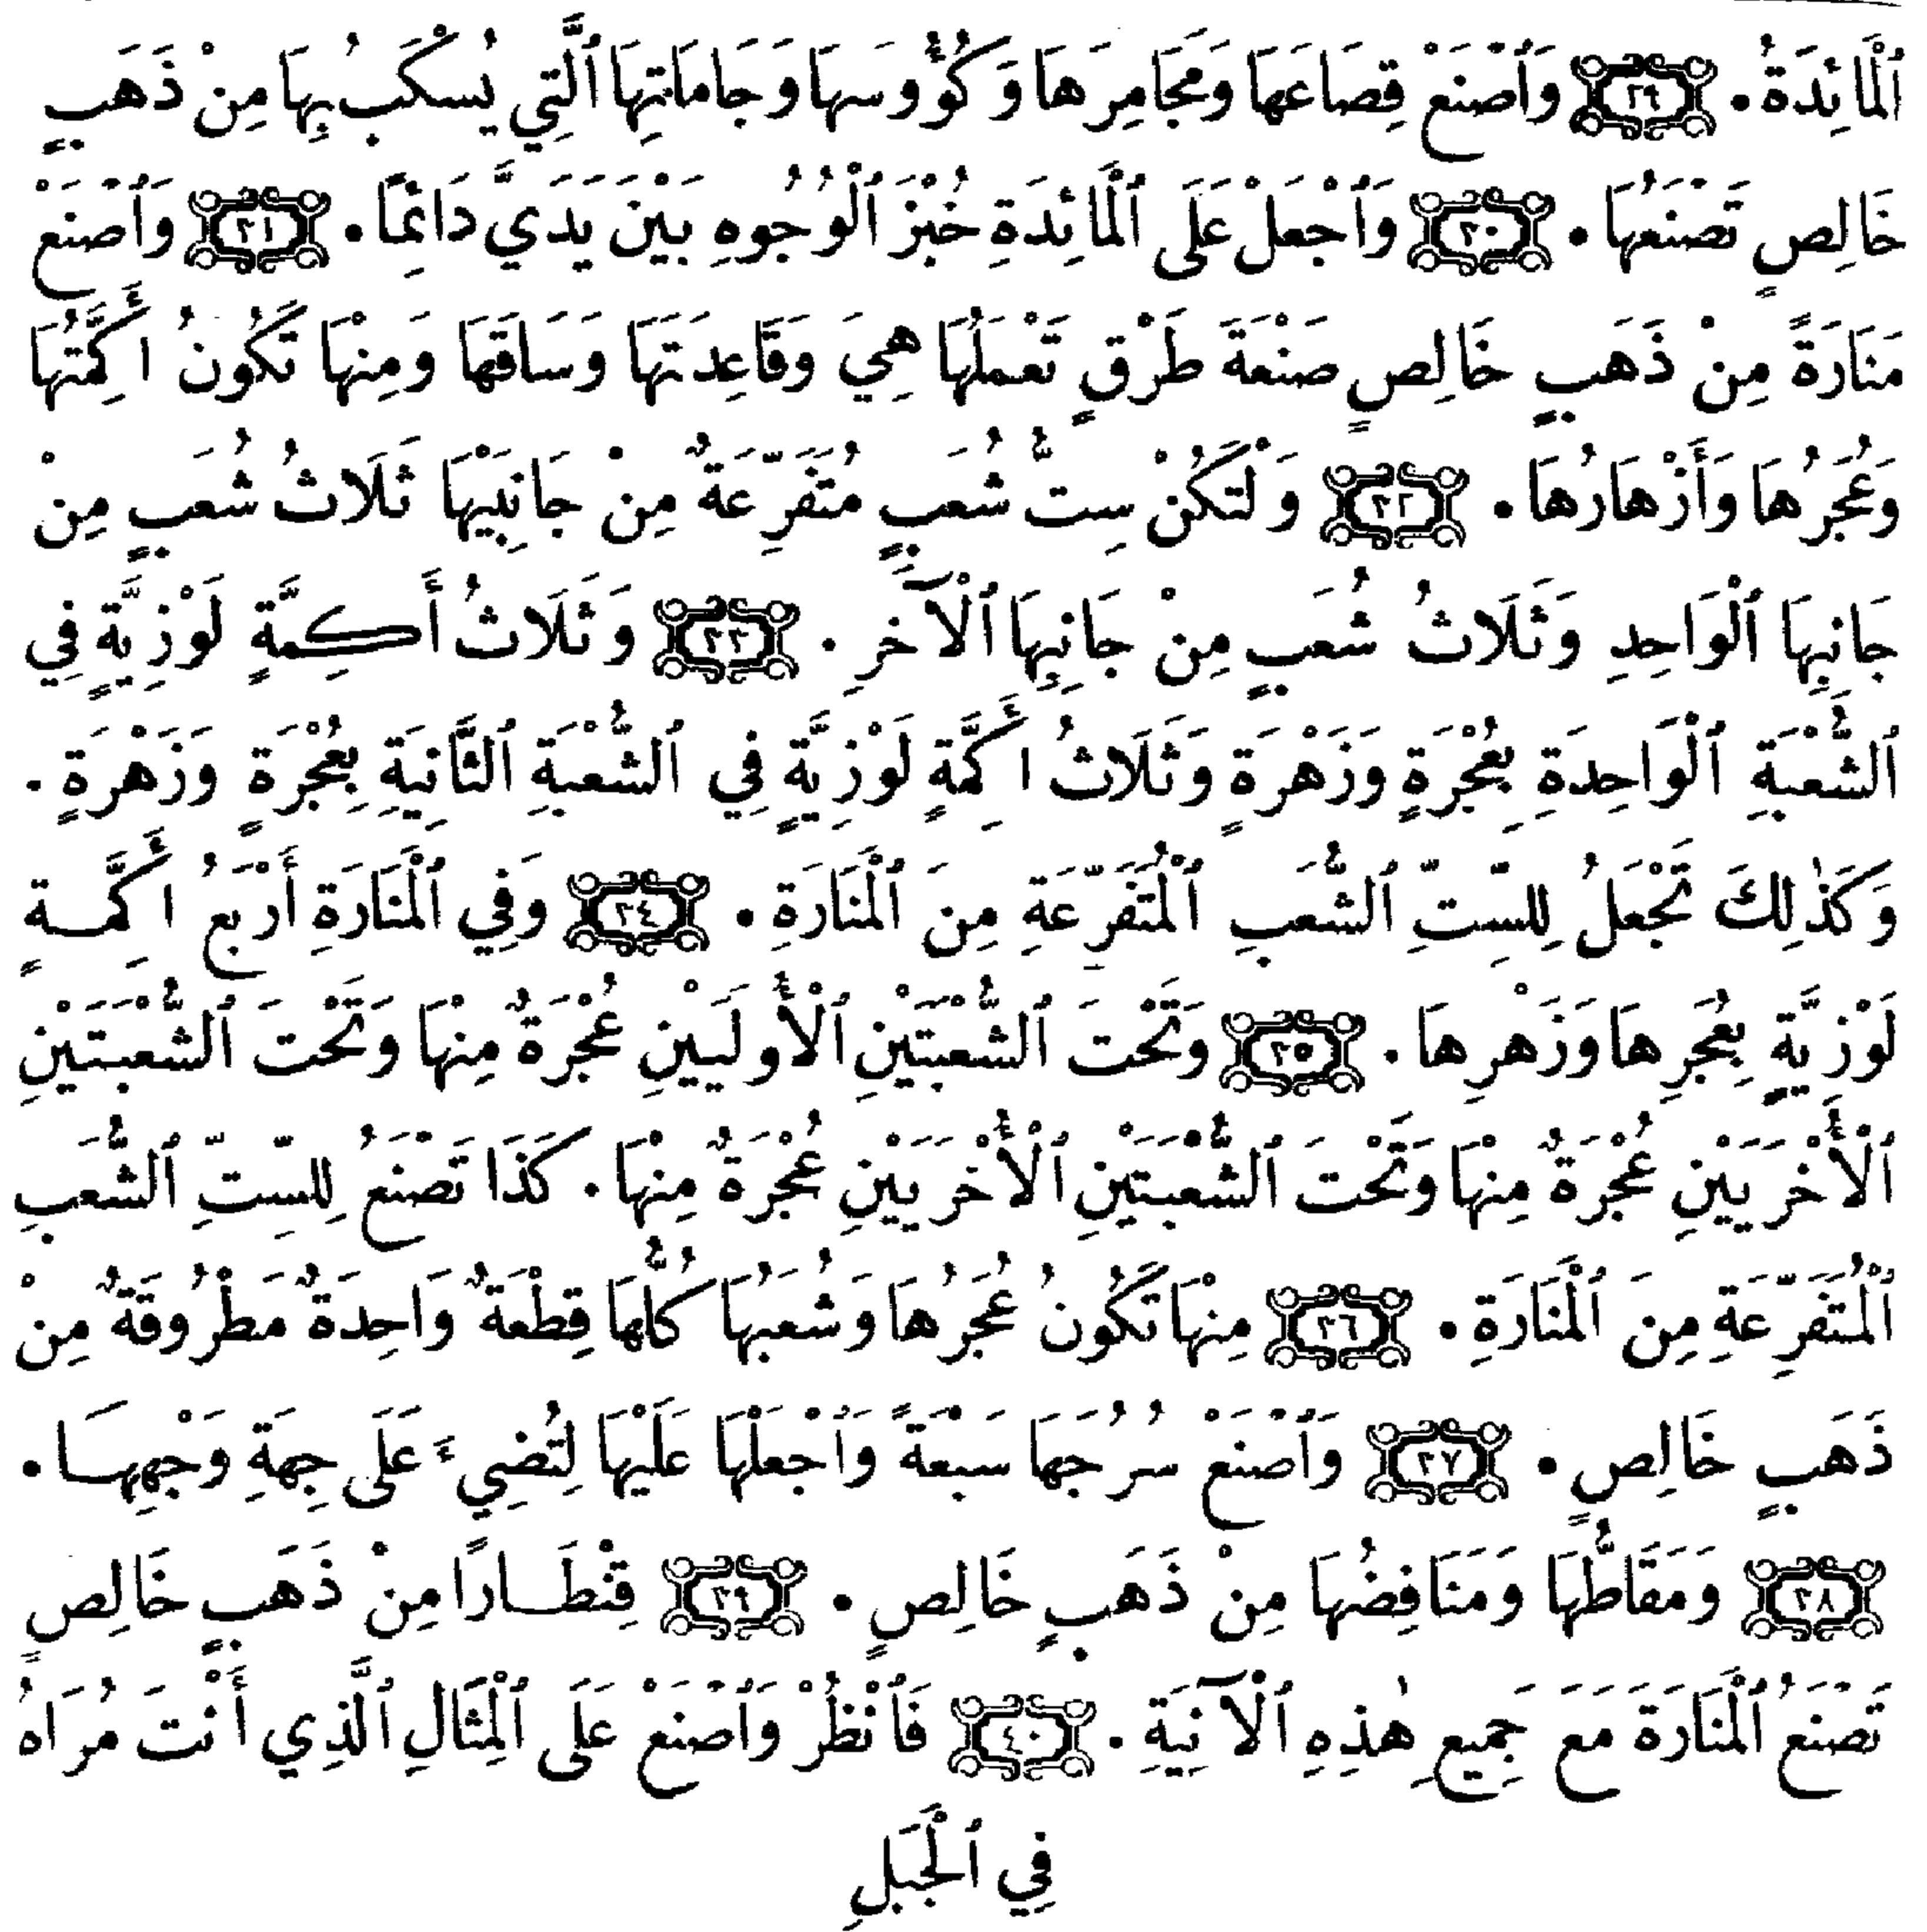 ٱلْمَائِدَةُ. ٢٩ وَٱصْنَعْ قِصَاعَهَا وَمَجَامِرَهَا وَكُؤُوسَهَا وَجَامَاتِهَا ٱلَّتِي يُسْكَبُ بِهَا مِنْ ذَهَبٍ
خَالِصٍ تَصْنَعُهَا. ٣٠ وَٱجْعَلْ عَلَى ٱلْمَائِدَةِ خُبْزَ ٱلْوُجُوهِ بَيْنَ يَدَيَّ دَائِمًا. ٣١ وَٱصْنَعْ
مَنَارَةً مِنْ ذَهَبٍ خَالِصٍ صَنْعَةَ طَرْقٍ تَعْمَلُهَا هِيَ وَقَاعِدَتَهَا وَسَاقَهَا وَمِنْهَا تَكُونُ أَكِمَّتُهَا
وَعُجَرُهَا وَأَزْهَارُهَا. ٣٢ وَلْتَكُنْ سِتُّ شُعَبٍ مُتَفَرِّعَةٌ مِنْ جَانِبَيْهَا ثَلَاثُ شُعَبٍ مِنْ
جَانِبِهَا ٱلْوَاحِدِ وَثَلَاثُ شُعَبٍ مِنْ جَانِبِهَا ٱلْآخَرِ. ٣٣ وَثَلَاثُ أَكِمَّةٍ لَوْزِيَّةٍ فِي
ٱلشُّعْبَةِ ٱلْوَاحِدَةِ بِعُجْرَةٍ وَزَهْرَةٍ وَثَلَاثُ أَكِمَّةٍ لَوْزِيَّةٍ فِي ٱلشُّعْبَةِ ٱلثَّانِيَةِ بِعُجْرَةٍ وَزَهْرَةٍ.
وَكَذٰلِكَ تَجْعَلُ لِلسِّتِّ ٱلشُّعَبِ ٱلْمُتَفَرِّعَةِ مِنَ ٱلْمَنَارَةِ. ٣٤ وَفِي ٱلْمَنَارَةِ أَرْبَعُ أَكِمَّةٍ
لَوْزِيَّةٍ بِعُجَرِهَا وَزَهْرِهَا. ٣٥ وَتَحْتَ ٱلشُّعْبَتَيْنِ ٱلْأُولَيَيْنِ عُجْرَةٌ مِنْهَا وَتَحْتَ ٱلشُّعْبَتَيْنِ
ٱلْأُخْرَيَيْنِ عُجْرَةٌ مِنْهَا وَتَحْتَ ٱلشُّعْبَتَيْنِ ٱلْأُخْرَيَيْنِ عُجْرَةٌ مِنْهَا. كَذَا تَصْنَعُ لِلسِّتِّ ٱلشُّعَبِ
ٱلْمُتَفَرِّعَةِ مِنَ ٱلْمَنَارَةِ. ٣٦ مِنْهَا تَكُونُ عُجَرُهَا وَشُعَبُهَا كُلُّهَا قِطْعَةٌ وَاحِدَةٌ مَطْرُوقَةٌ مِنْ
ذَهَبٍ خَالِصٍ. ٣٧ وَٱصْنَعْ سُرُجَهَا سَبْعَةً وَٱجْعَلْهَا عَلَيْهَا لِتُضِيءَ عَلَى جِهَةِ وَجْهِهَا.
٣٨ وَمَقَاطُّهَا وَمَنَافِضُهَا مِنْ ذَهَبٍ خَالِصٍ. ٣٩ قِنْطَارًا مِنْ ذَهَبٍ خَالِصٍ
تَصْنَعُ ٱلْمَنَارَةَ مَعَ جَمِيعِ هٰذِهِ ٱلْآنِيَةِ. ٤٠ فَٱنْظُرْ وَٱصْنَعْ عَلَى ٱلْمِثَالِ ٱلَّذِي أَنْتَ مُرَاهُ
فِي ٱلْجَبَلِ